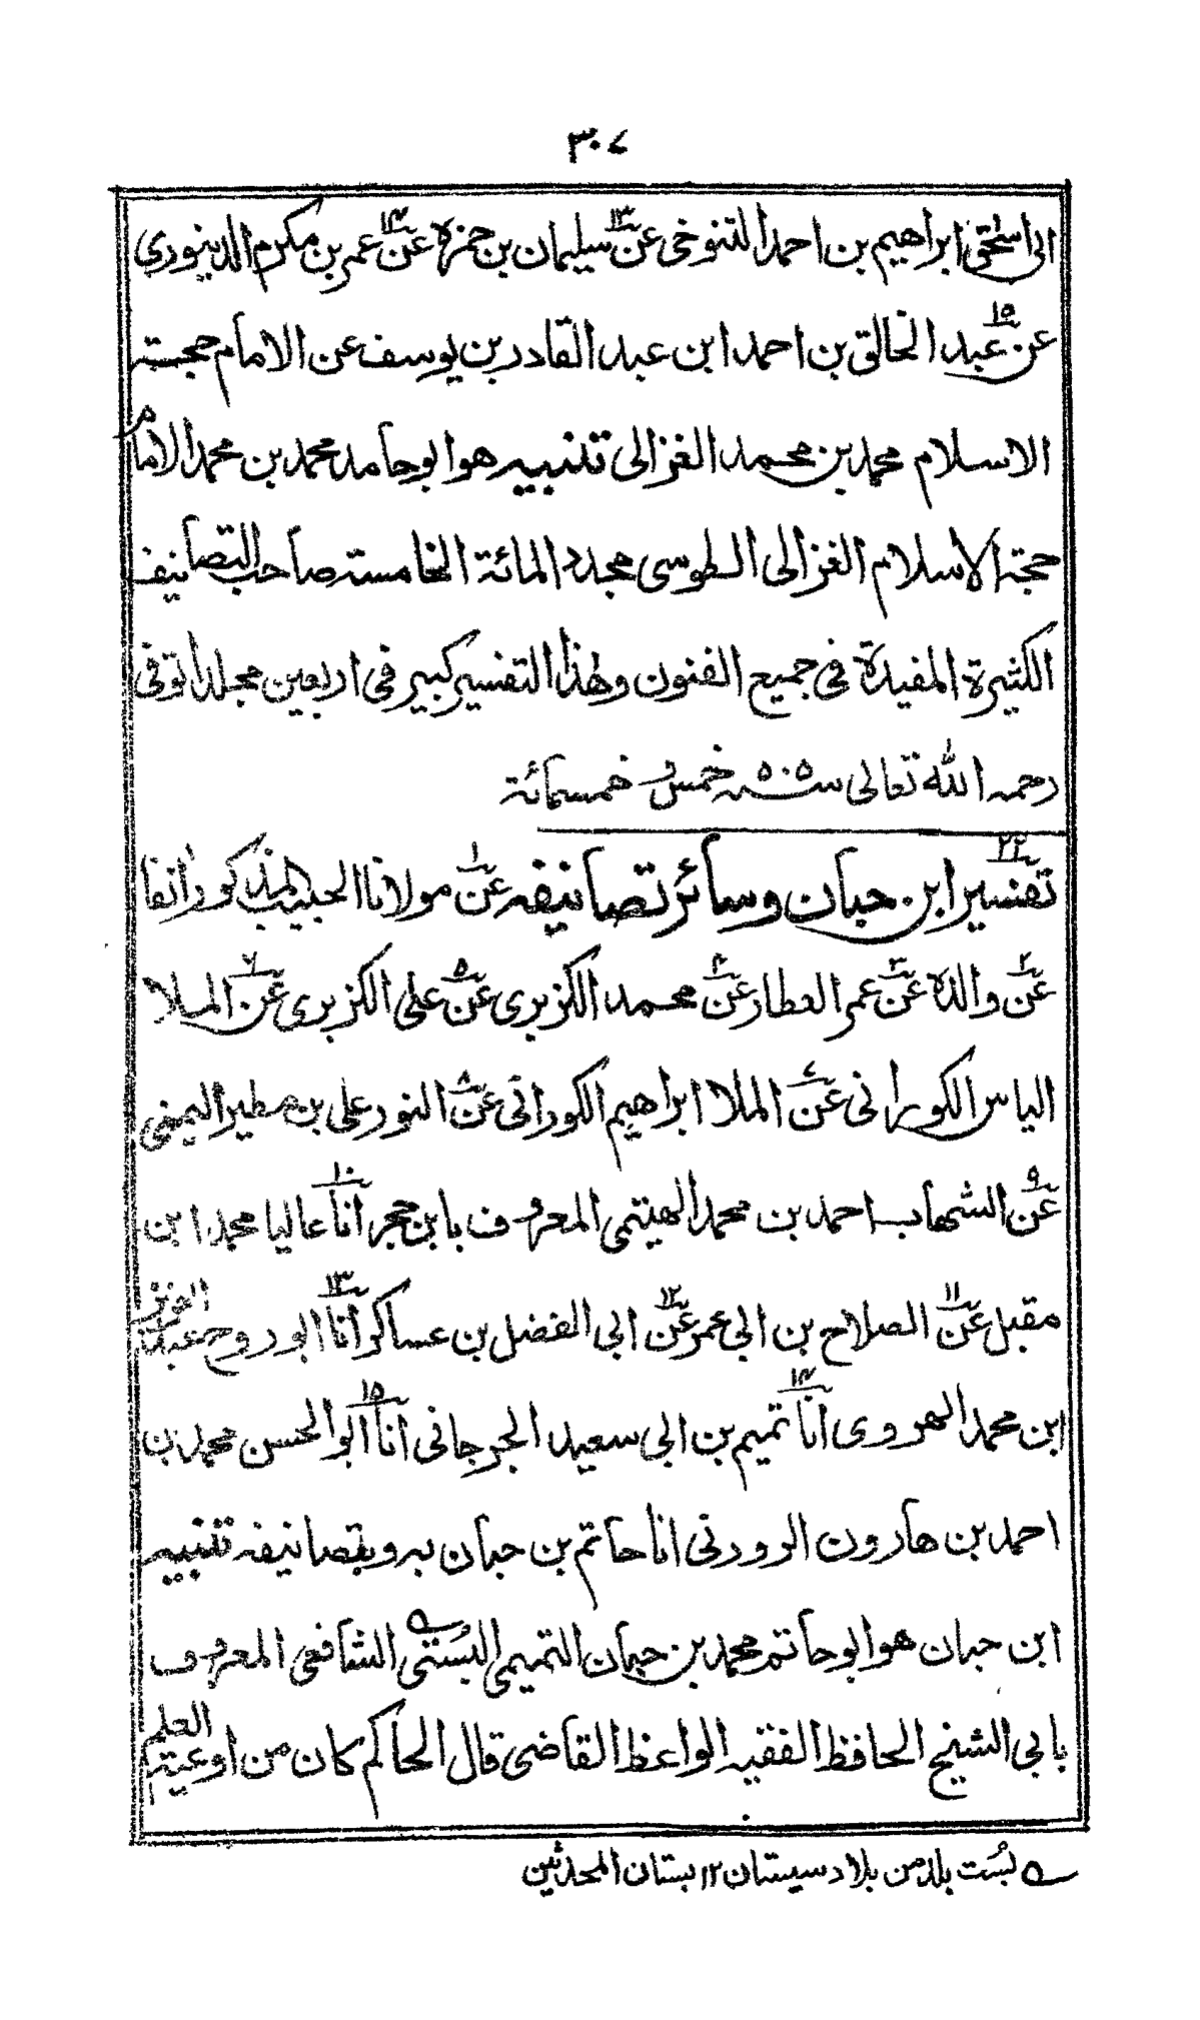 ٣٠٧
ابى اسحٰق ابراهيم بن احمد التنوخى عن١٣ سليمان بن حمزه عن١٤ عمر بن مكرم الدينورى
عن١٥ عبد الخالق بن احمد ابن عبد القادر بن يوسف عن الامام حجة
الاسلام محمد بن محمد الغزالى تنبيه هو ابو حامد محمد بن محمد الامام
حجة الاسلام الغزالى الطوسى مجدد المائة الخامسة صاحب التصانيف
الكثيرة المفيدة فى جميع الفنون وهٰذا التفسير كبير فى اربعين مجلدا توفى
رحمه الله تعالى سنه ٥٠٥ خمس و خمسمائة
٢٢ تفسير ابن حبان وسائر تصانيفه عن١ مولانا الحبيب المذكور انفا
عن٢ والده عن٣ عمر العطار عن٤ محمد الكزبرى عن٥ على الكزبرى عن٦ الملا
الياس الكورانى عن٧ الملا ابراهيم الكورانى عن٨ النور على بن مطير اليمنى
عن٩ الشهاب احمد بن محمد الهيتمى المعروف بابن حجر انا١٠ عاليا محمد ابن
مقبل عن١١ الصلاح بن ابى عمر عن١٢ ابى الفضل بن عساكر انا١٣ ابو روح عبد
ابن محمد الهروى انا١٤ تميم بن ابى سعيد الجرجانى انا١٥ ابو الحسن محمد بن
احمد بن هارون الزوزنى انا حاتم بن حبان به وبتصانيفه تنبيه
ابن حبان هو ابو حاتم محمد بن حبان التميمى البُستى الشافعى المعروف
بابى الشيخ الحافظ الفقيه الواعظ القاضى قال الحاكم كان من اوعية العلم
بُست بلد من بلاد سيستان ١٢ بستان المحدثين